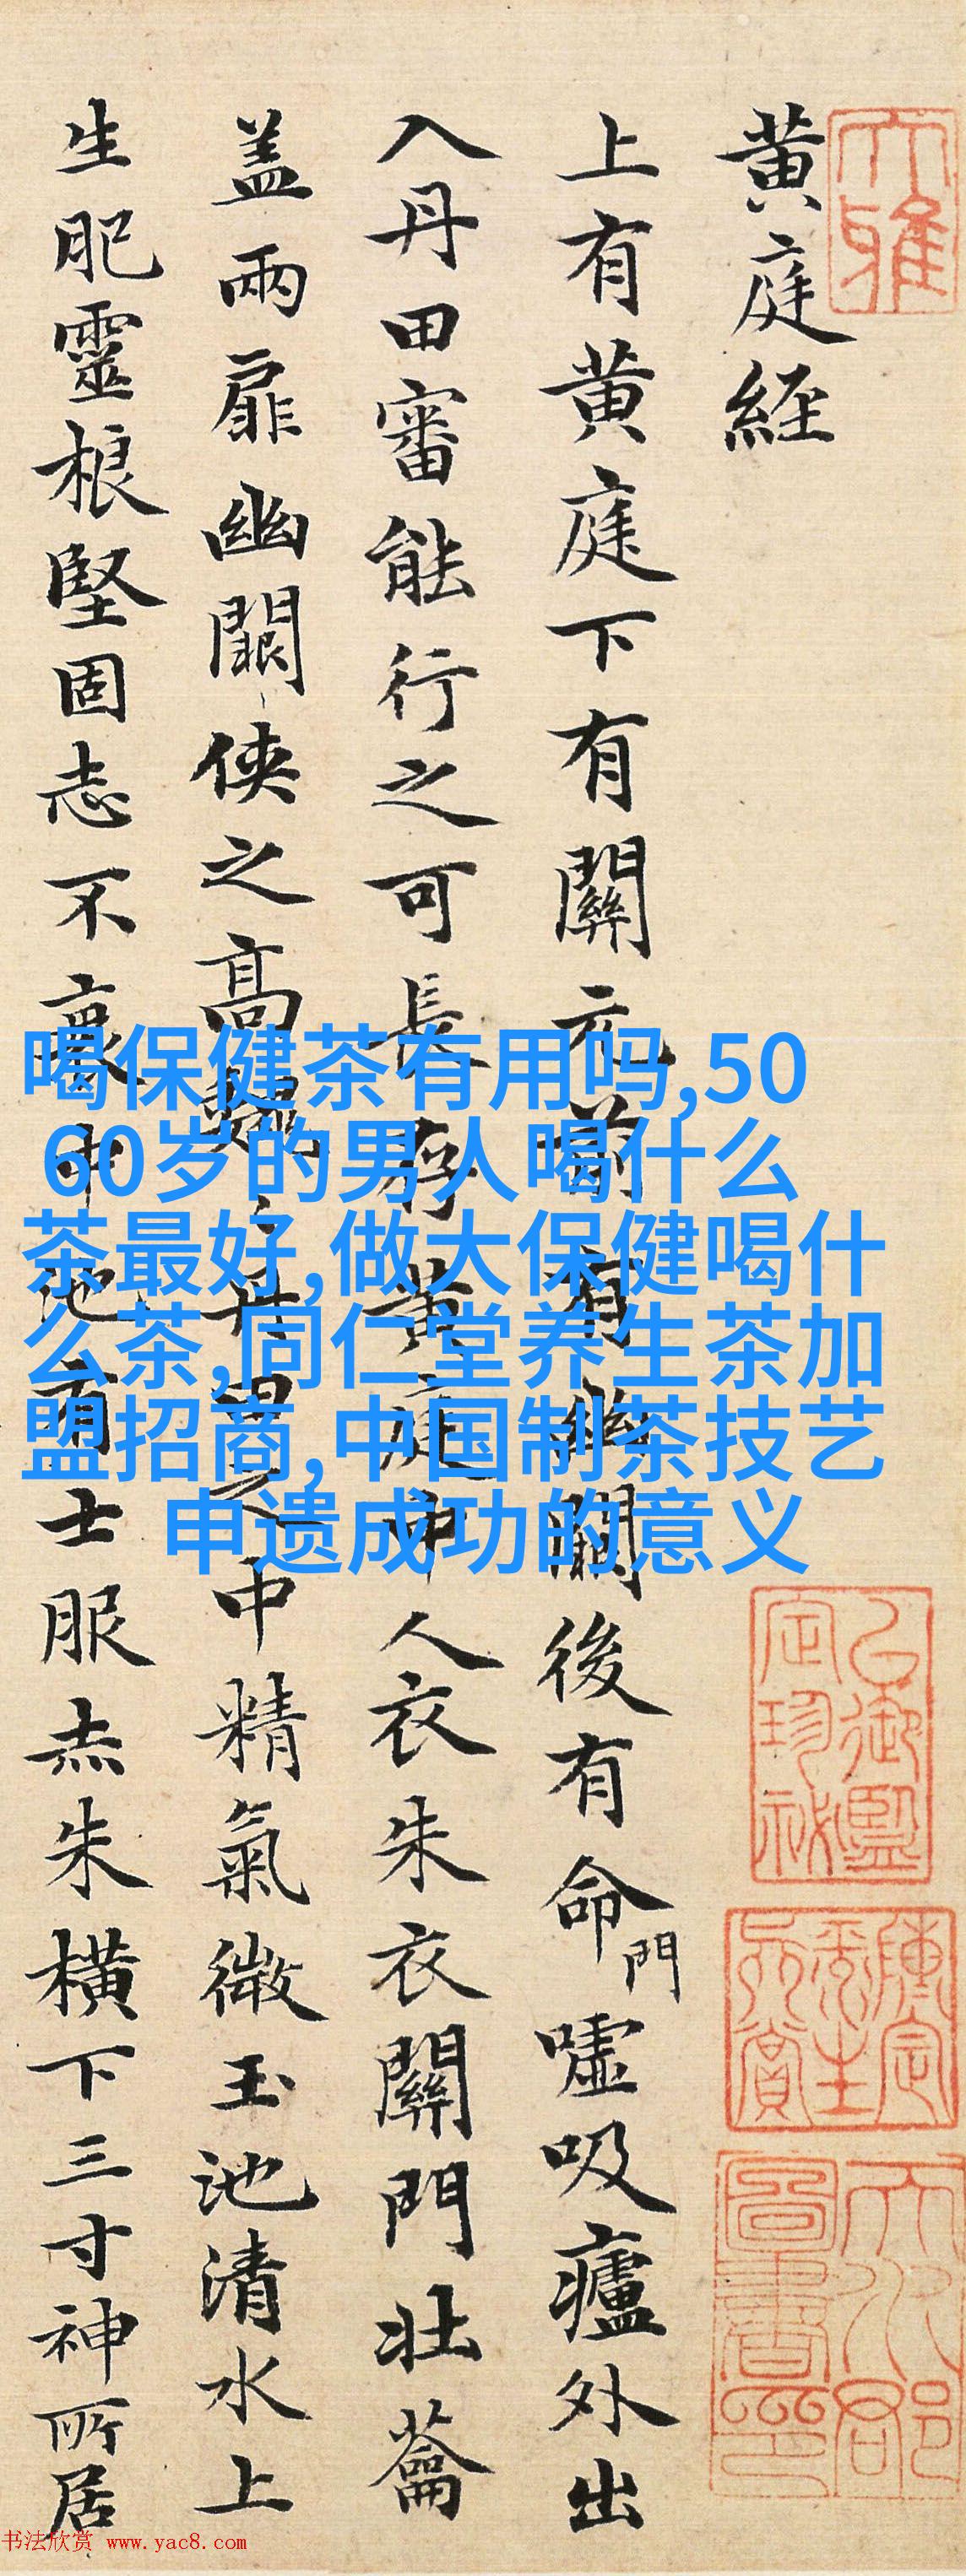 黄庭経
上有黄庭下有關元前有幽闕後有命門嘘吸廬外出
入丹田審能行之可長存黄庭中人衣朱衣關門壮蘥
盖兩扉幽闕侠之高巍巍丹田之中精氣微玉池清水上
生肥靈根堅固志不衰中池有士服赤朱横下三寸神所居
喝保健茶有用吗,50
60岁的男人喝什么
茶最好,做大保健喝什
么茶,同仁堂养生茶加
盟招商,中国制茶技艺
申遗成功的意义
书法欣赏 www.yac8.com